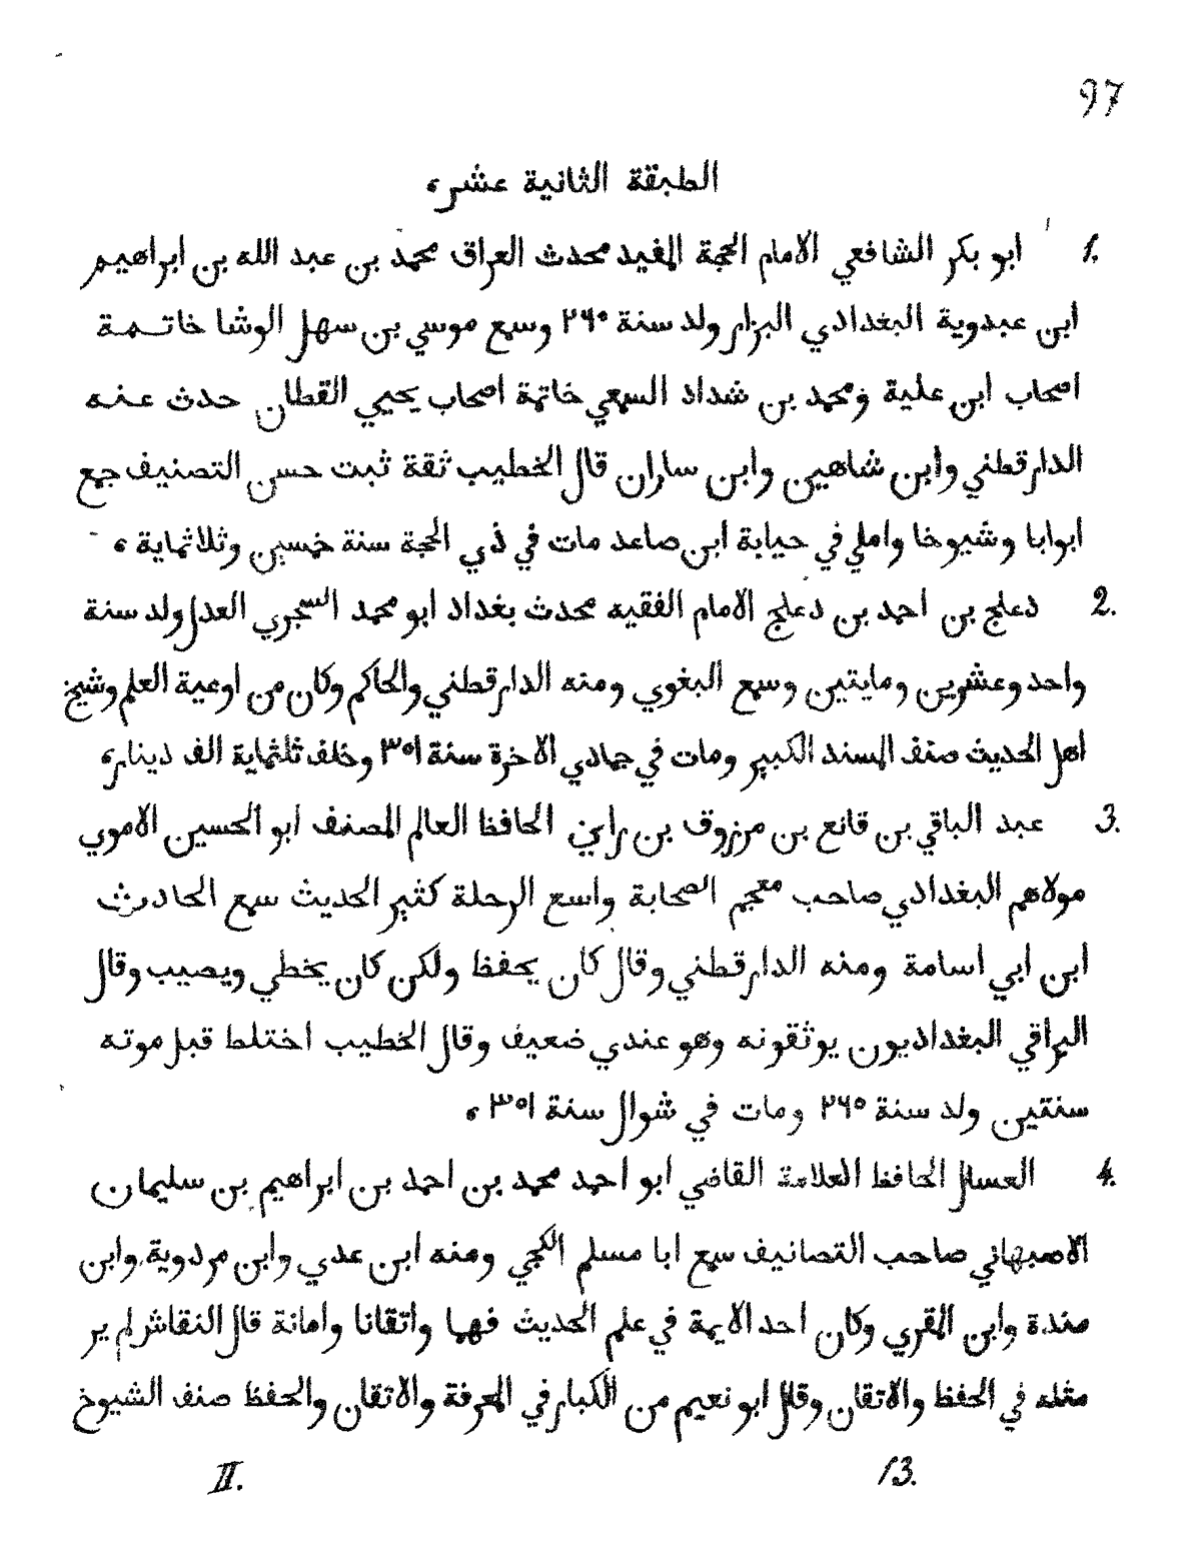 97
الطبقة الثانية عشر،
1. ابو بكر الشافعي الامام الحجة المفيد محدث العراق محمد بن عبد الله بن ابراهيم
ابن عبدوية البغدادي البزار ولد سنة ٢٦٠ وسمع موسي بن سهل الوشا خاتمة
اصحاب ابن علية ومحمد بن شداد السمعي خاتمة اصحاب يحيي القطان حدث عنه
الدارقطني وابن شاهين وابن ساران قال الخطيب ثقة ثبت حسن التصنيف جمع
ابوابا وشيوخا واملي في حياية ابن صاعد مات في ذي الحجة سنة خمسين وثلاثماية،
2. دعلج بن احمد بن دعلج الامام الفقيه محدث بغداد ابو محمد السجري العدل ولد سنة
واحد وعشرين ومايتين وسمع البغوي ومنه الدارقطني والحاكم وكان من اوعية العلم وشيخ
اهل الحديث صنف المسند الكبير ومات في جمادي الاخرة سنة ٣٥١ وخلف ثلثماية الف دينار،
3. عبد الباقي بن قانع بن مرزوق بن راين الحافظ العالم المصنف ابو الحسين الاموي
مولاهم البغدادي صاحب معجم الصحابة واسع الرحلة كثير الحديث سمع الحادرث
ابن ابي اسامة ومنه الدارقطني وقال كان يحفظ ولكن كان يخطي ويصيب وقال
البراقي البغداديون يوثقونه وهو عندي ضعيف وقال الخطيب اختلط قبل موته
سنتين ولد سنة ٢٦٥ ومات في شوال سنة ٣٥١،
4. العسال الحافظ العلامة القاضي ابو احمد محمد بن احمد بن ابراهيم بن سليمان
الاصبهاني صاحب التصانيف سمع ابا مسلم الكجي ومنه ابن عدي وابن مردوية وابن
مندة وابن المقري وكان احد الايمة في علم الحديث فهما واتقانا وامانة قال النقاش لم ير
مثله في الحفظ والاتقان وقال ابو نعيم من الكبار في المعرفة والاتقان والحفظ صنف الشيوخ
13.
II.